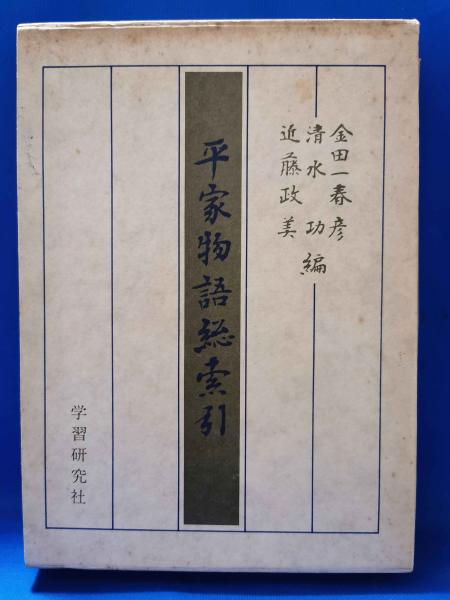 金田一春彦
清水功
近藤政美
編
平家物語総索引
学習研究社